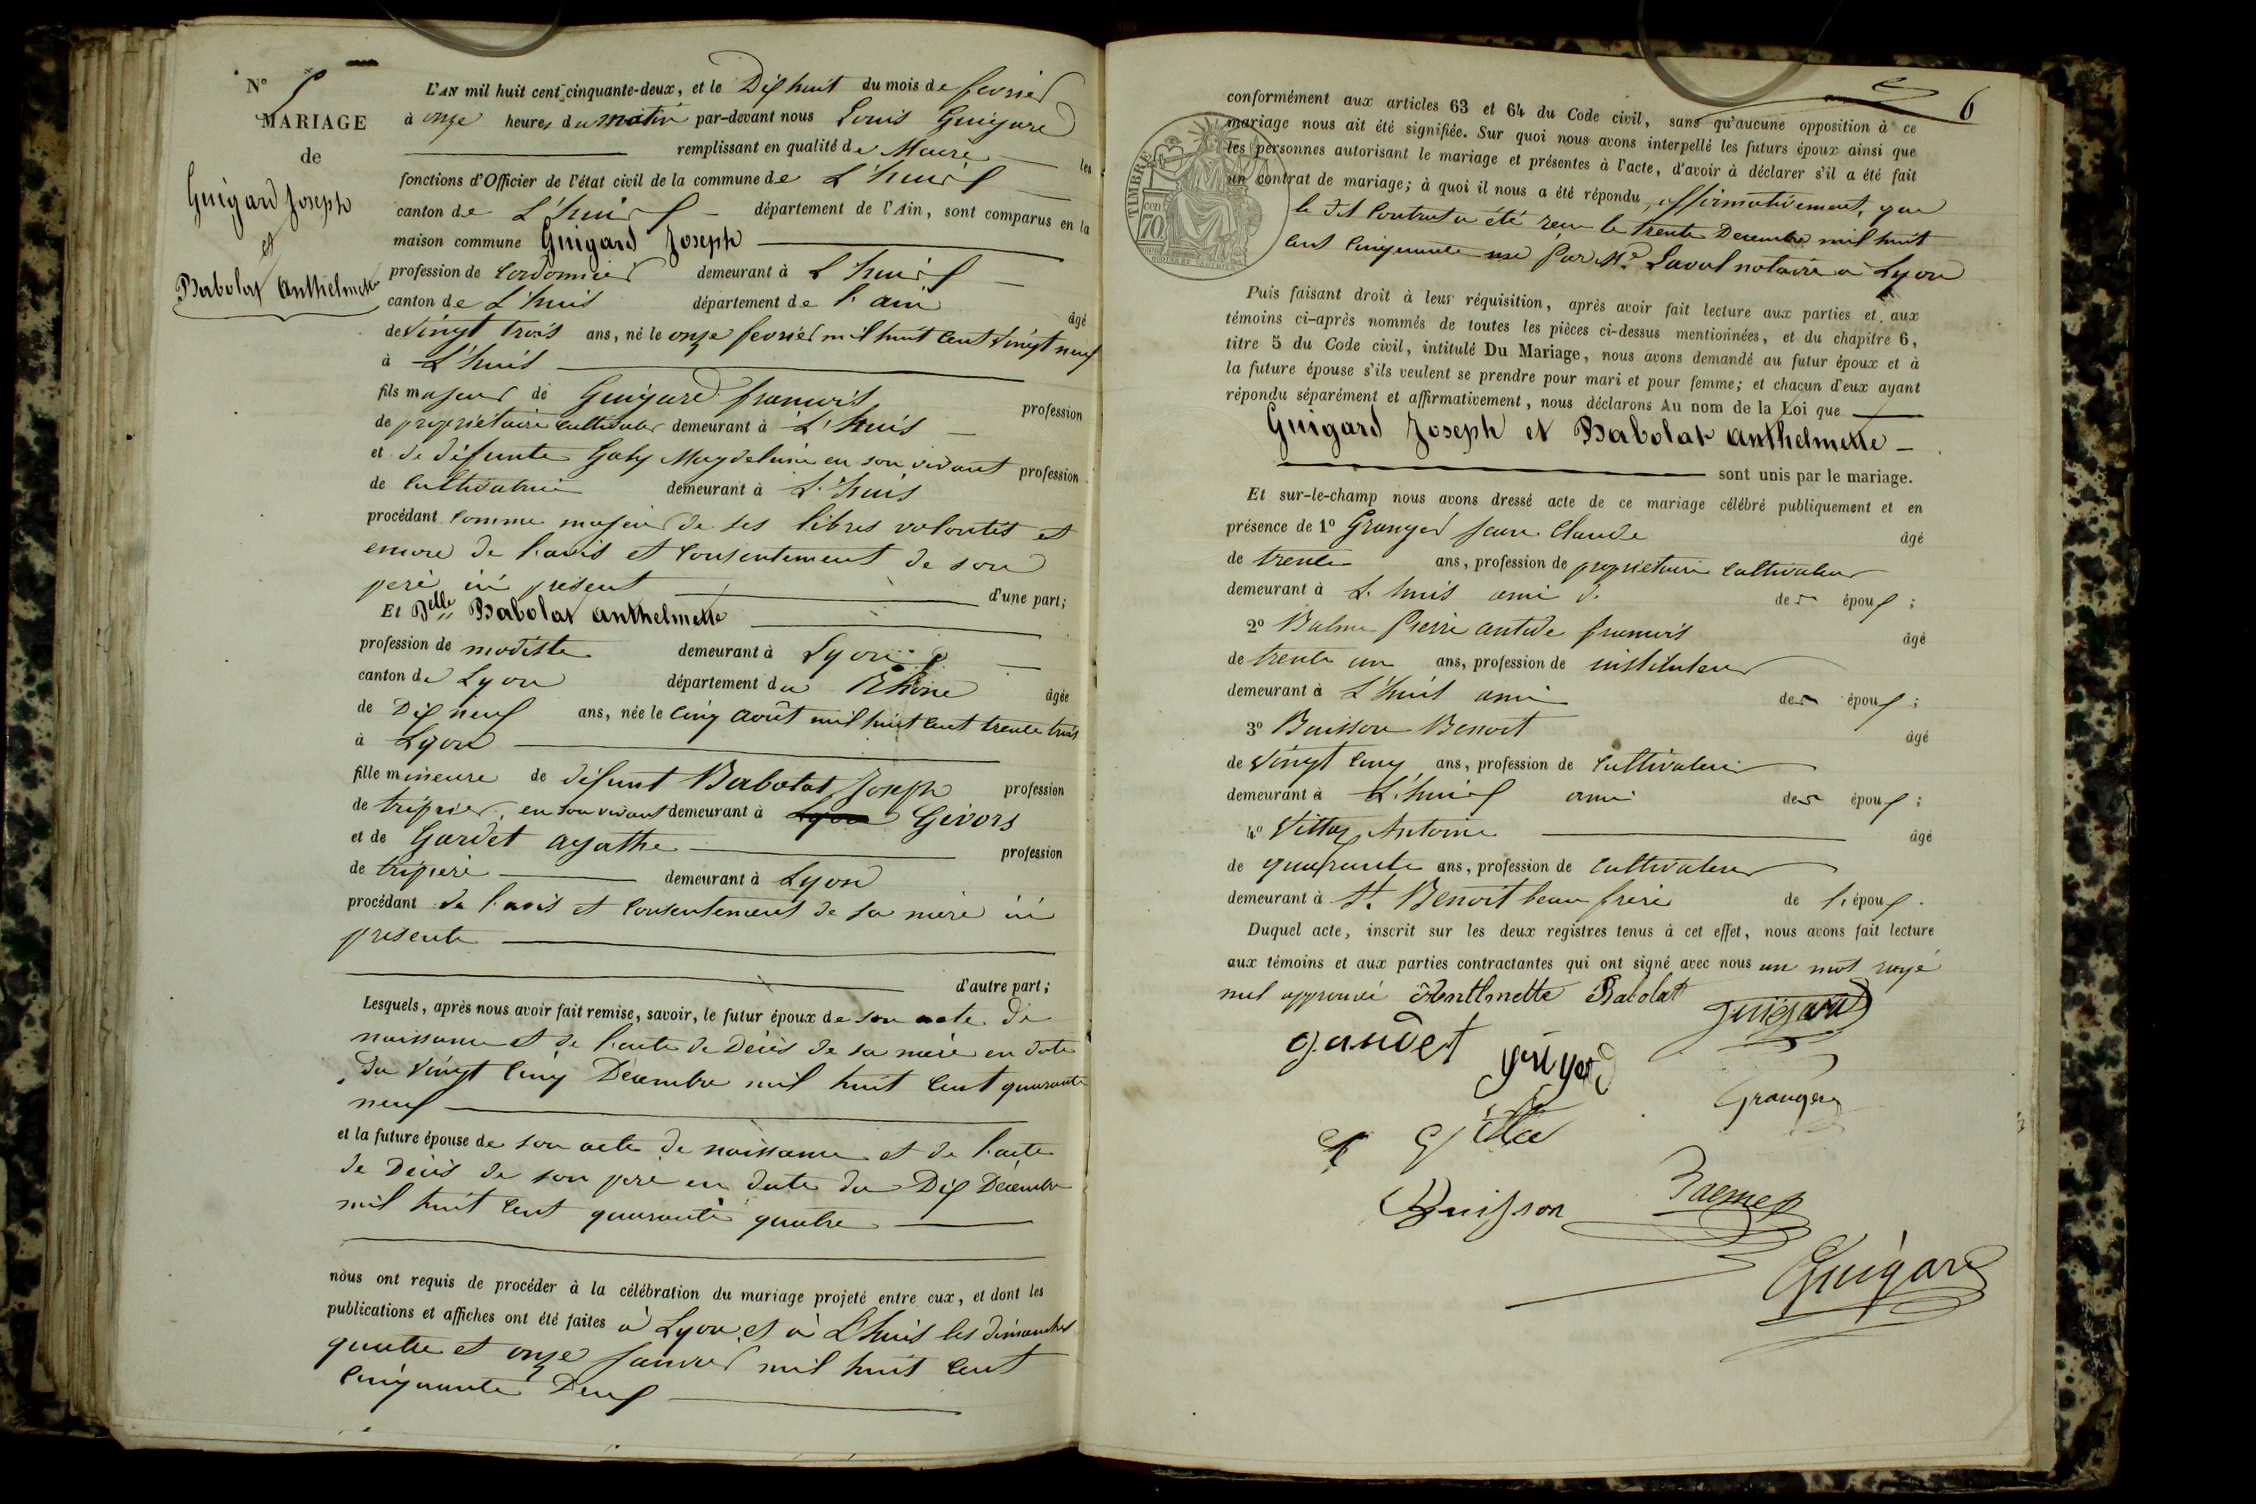 N° 5
MARIAGE
de
Guigard Joseph
et
Babolat Anthelmette
L'AN mil huit cent cinquante-deux, et le Dix huit du mois de fevrier
à onze heures du matin par-devant nous Louis Guigard
remplissant en qualité de Maire les
fonctions d'Officier de l'état civil de la commune de L'huis
canton de L'huis département de l'Ain, sont comparus en la
maison commune Guigard Joseph
profession de Cordonnier demeurant à L'huis
canton de L'huis département de l'ain âgé
de vingt trois ans, né le onze fevrier mil huit cent vingt neuf
à L'huis
fils majeur de Guigard francois profession
de proprietaire cultivateur demeurant à L'huis
et de défunte Gaby Magdeleine en son vivant profession
de cultivatrice demeurant à L'huis
procédant comme majeur de ses libres volontés et
encore de l'avis et consentement de son
pere ici present d'une part;
Et Delle Babolat Anthelmette
profession de modiste demeurant à Lyon
canton de Lyon département du Rhône âgée
de Dix neuf ans, née le cinq Août mil huit cent trente trois
à Lyon
fille mineure de défunt Babolat Joseph profession
de tripier, en son vivant demeurant à Lyon Givors
et de Gardet agathe profession
de tripiere demeurant à Lyon
procédant de l'avis et consentement de sa mere ici
presente
d'autre part;
Lesquels, après nous avoir fait remise, savoir, le futur époux de son acte de
naissance et de l'acte de Décès de sa mère en date
du vingt cinq Decembre mil huit cent quarante
neuf
et la future épouse de son acte de naissance et de l'acte
de Décès de son pere en date du Dix Décembre
mil huit cent quarante quatre
nous ont requis de procéder à la célébration du mariage projeté entre eux, et dont les
publications et affiches ont été faites à Lyon et à L'huis les dimanches
quatre et onze Janvier mil huit cent
cinquante Deux
6
TIMBRE
70 cen
conformément aux articles 63 et 64 du Code civil, sans qu'aucune opposition à ce
mariage nous ait été signifiée. Sur quoi nous avons interpellé les futurs époux ainsi que
les personnes autorisant le mariage et présentes à l'acte, d'avoir à déclarer s'il a été fait
un contrat de mariage; à quoi il nous a été répondu affirmativement, que
le dit Contrat a été recu le trente Decembre mil huit
cent cinquante une par Me Laval notaire a Lyon
Puis faisant droit à leur réquisition, après avoir fait lecture aux parties et aux
témoins ci-après nommés de toutes les pièces ci-dessus mentionnées, et du chapitre 6,
titre 5 du Code civil, intitulé Du Mariage, nous avons demandé au futur époux et à
la future épouse s'ils veulent se prendre pour mari et pour femme; et chacun d'eux ayant
répondu séparément et affirmativement, nous déclarons Au nom de la Loi que
Guigard Joseph et Babolat Anthelmette
sont unis par le mariage.
Et sur-le-champ nous avons dressé acte de ce mariage célébré publiquement et en
présence de 1° Granger Jean Claude âgé
de trente ans, profession de proprietaire cultivateur
demeurant à L'huis ami des époux;
2° Balme Pierre antide francois âgé
de trente un ans, profession de instituteur
demeurant à L'huis ami des époux;
3° Buisson Benoit âgé
de vingt cinq ans, profession de cultivateur
demeurant à L'huis ami des époux;
4° Antoine âgé
de quarante ans, profession de cultivateur
demeurant à St. Benoit beau frere de l'époux.
Duquel acte, inscrit sur les deux registres tenus à cet effet, nous avons fait lecture
aux témoins et aux parties contractantes qui ont signé avec nous un mot rayé
nul approuvé Anthmette Babolat Guigard
gaudet guigard
Granger
Buisson Balme
Guigard